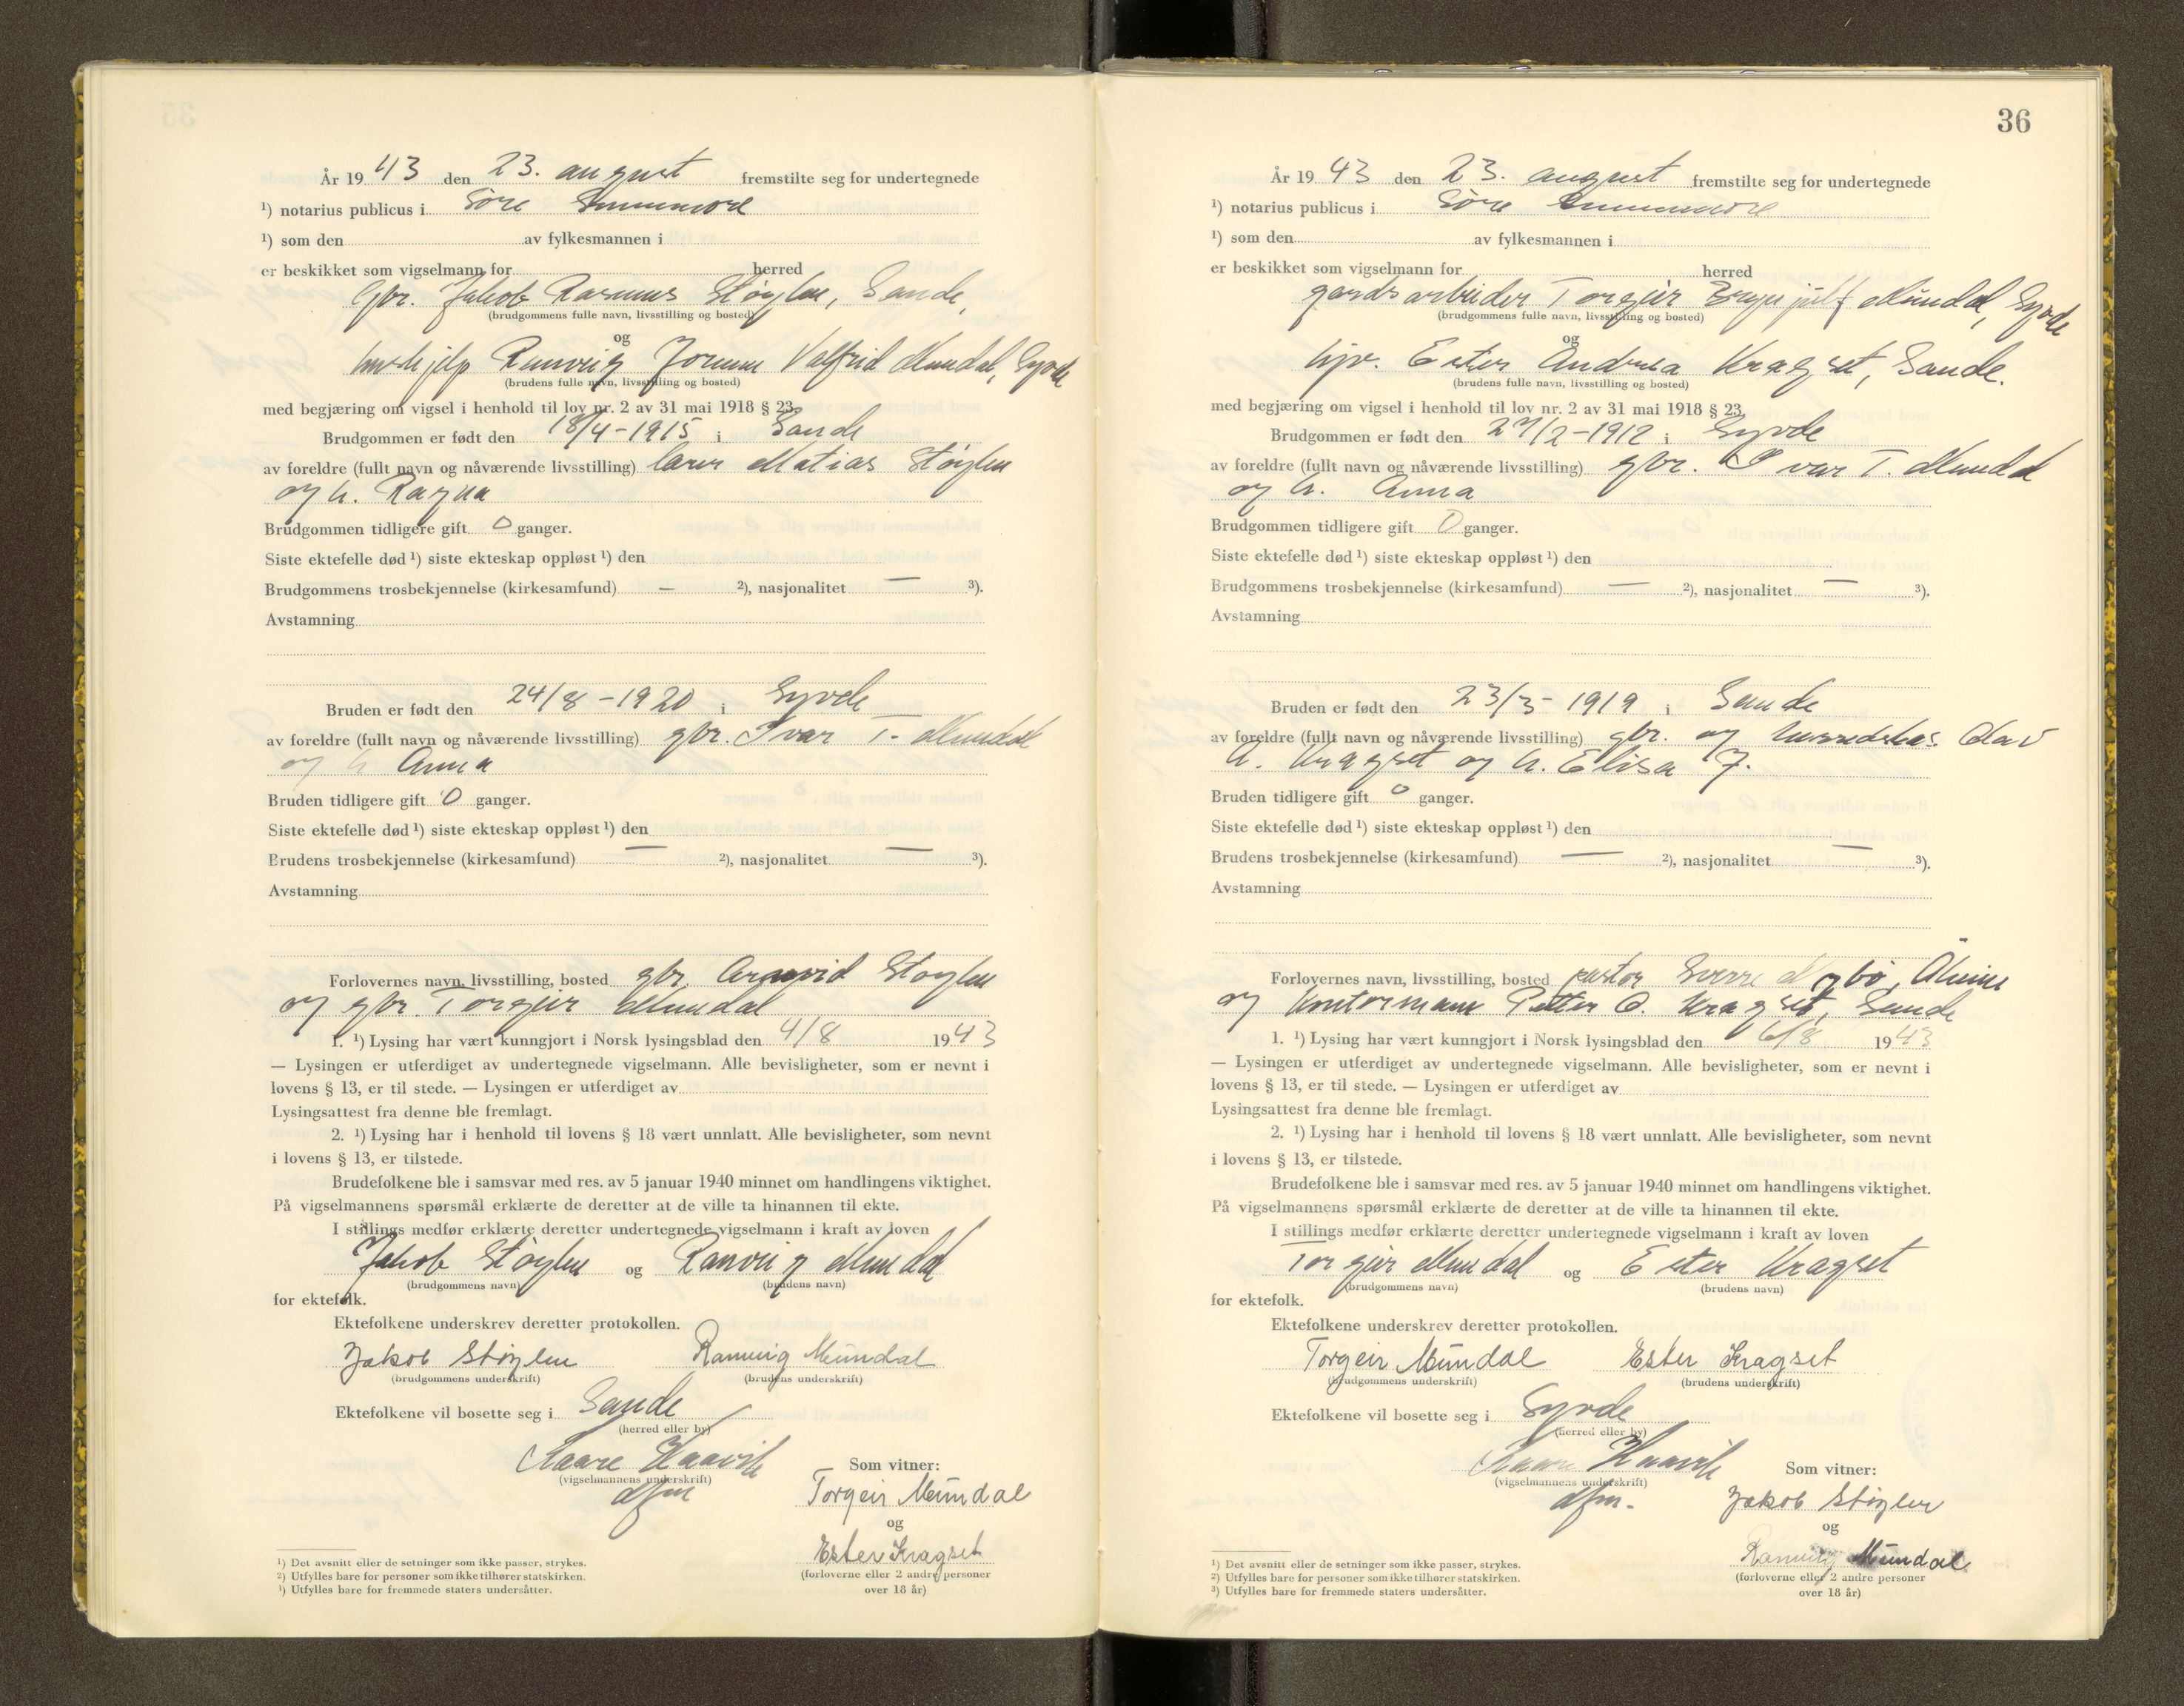 År 19 43 den 23. august fremstilte seg for undertegnede
¹) notarius publicus i Söre Sunnmøre
¹) som den av fylkesmannen i
er beskikket som vigselmann for herred
gbr. Jakob Rasmus Støylen, Sande,
(brudgommens fulle navn, livsstilling og bosted)
og
hushjelp Ranveig Jorunn Valfrid Mundal, Syvde
(brudens fulle navn, livsstilling og bosted)
med begjæring om vigsel i henhold til lov nr. 2 av 31 mai 1918 § 23.
Brudgommen er født den 18/4-1915 i Sande
av foreldre (fullt navn og nåværende livsstilling) lærer Matias Støylen
og h. Ragna
Brudgommen tidligere gift 0 ganger.
Siste ektefelle død ¹) siste ekteskap oppløst ¹) den
Brudgommens trosbekjennelse (kirkesamfund) — ²), nasjonalitet — ³).
Avstamning
Bruden er født den 24/8-1920 i Syvde
av foreldre (fullt navn og nåværende livsstilling) gbr. Ivar T. Mundal
og h Anna
Bruden tidligere gift 0 ganger.
Siste ektefelle død ¹) siste ekteskap oppløst ¹) den
Brudens trosbekjennelse (kirkesamfund) — ²), nasjonalitet — ³).
Avstamning
Forlovernes navn, livsstilling, bosted gbr. Støylen
og gbr. Torgeir Mundal
1. ¹) Lysing har vært kunngjort i Norsk lysingsblad den 4/8 1943
— Lysingen er utferdiget av undertegnede vigselmann. Alle bevisligheter, som er nevnt i
lovens § 13, er til stede. — Lysingen er utferdiget av
Lysingsattest fra denne ble fremlagt.
2. ¹) Lysing har i henhold til lovens § 18 vært unnlatt. Alle bevisligheter, som nevnt
i lovens § 13, er tilstede.
Brudefolkene ble i samsvar med res. av 5 januar 1940 minnet om handlingens viktighet.
På vigselmannens spørsmål erklærte de deretter at de ville ta hinannen til ekte.
I stillings medfør erklærte deretter undertegnede vigselmann i kraft av loven
Jakob Støylen og Ranveig Mundal
(brudgommens navn) (brudens navn)
for ektefolk.
Ektefolkene underskrev deretter protokollen.
Jakob Støylen Ranveig Mundal
(brudgommens underskrift) (brudens underskrift)
Ektefolkene vil bosette seg i Sande
(herred eller by)
Kaare Haavik
(vigselmannens underskrift)
dfm
Som vitner:
Torgeir Mundal
og
Ester Kragset
(forloverne eller 2 andre personer
over 18 år)
¹) Det avsnitt eller de setninger som ikke passer, strykes.
²) Utfylles bare for personer som ikke tilhører statskirken.
¹) Utfylles bare for fremmede staters undersåtter.
36
År 19 43 den 23. august fremstilte seg for undertegnede
¹) notarius publicus i Söre Sunnmøre
¹) som den av fylkesmannen i
er beskikket som vigselmann for herred
gardsarbeider Torgeir Mundal, Syvde
(brudgommens fulle navn, livsstilling og bosted)
og
hjv. Ester Andrea Kragset, Sande.
(brudens fulle navn, livsstilling og bosted)
med begjæring om vigsel i henhold til lov nr. 2 av 31 mai 1918 § 23.
Brudgommen er født den 27/2-1912 i Syvde
av foreldre (fullt navn og nåværende livsstilling) gbr. Ivar T. Mundal
og h. Anna
Brudgommen tidligere gift 0 ganger.
Siste ektefelle død ¹) siste ekteskap oppløst ¹) den
Brudgommens trosbekjennelse (kirkesamfund) — ²), nasjonalitet — ³).
Avstamning
Bruden er født den 23/3-1919 i Sande
av foreldre (fullt navn og nåværende livsstilling) gbr. og herredskas. Olav
A. Kragset og h. Elisa J.
Bruden tidligere gift 0 ganger.
Siste ektefelle død ¹) siste ekteskap oppløst ¹) den
Brudens trosbekjennelse (kirkesamfund) — ²), nasjonalitet — ³).
Avstamning
Forlovernes navn, livsstilling, bosted pastor Sverre
og kontormann Petter O. Kragset, Sande
1. ¹) Lysing har vært kunngjort i Norsk lysingsblad den 6/8 1943
— Lysingen er utferdiget av undertegnede vigselmann. Alle bevisligheter, som er nevnt i
lovens § 13, er til stede. — Lysingen er utferdiget av
Lysingsattest fra denne ble fremlagt.
2. ¹) Lysing har i henhold til lovens § 18 vært unnlatt. Alle bevisligheter, som nevnt
i lovens § 13, er tilstede.
Brudefolkene ble i samsvar med res. av 5 januar 1940 minnet om handlingens viktighet.
På vigselmannens spørsmål erklærte de deretter at de ville ta hinannen til ekte.
I stillings medfør erklærte deretter undertegnede vigselmann i kraft av loven
Torgeir Mundal og Ester Kragset
(brudgommens navn) (brudens navn)
for ektefolk.
Ektefolkene underskrev deretter protokollen.
Torgeir Mundal Ester Kragset
(brudgommens underskrift) (brudens underskrift)
Ektefolkene vil bosette seg i Syvde
(herred eller by)
Kaare Haavik
(vigselmannens underskrift)
dfm.
Som vitner:
Jakob Støylen
og
Ranveig Mundal
(forloverne eller 2 andre personer
over 18 år)
¹) Det avsnitt eller de setninger som ikke passer, strykes.
²) Utfylles bare for personer som ikke tilhører statskirken.
³) Utfylles bare for fremmede staters undersåtter.